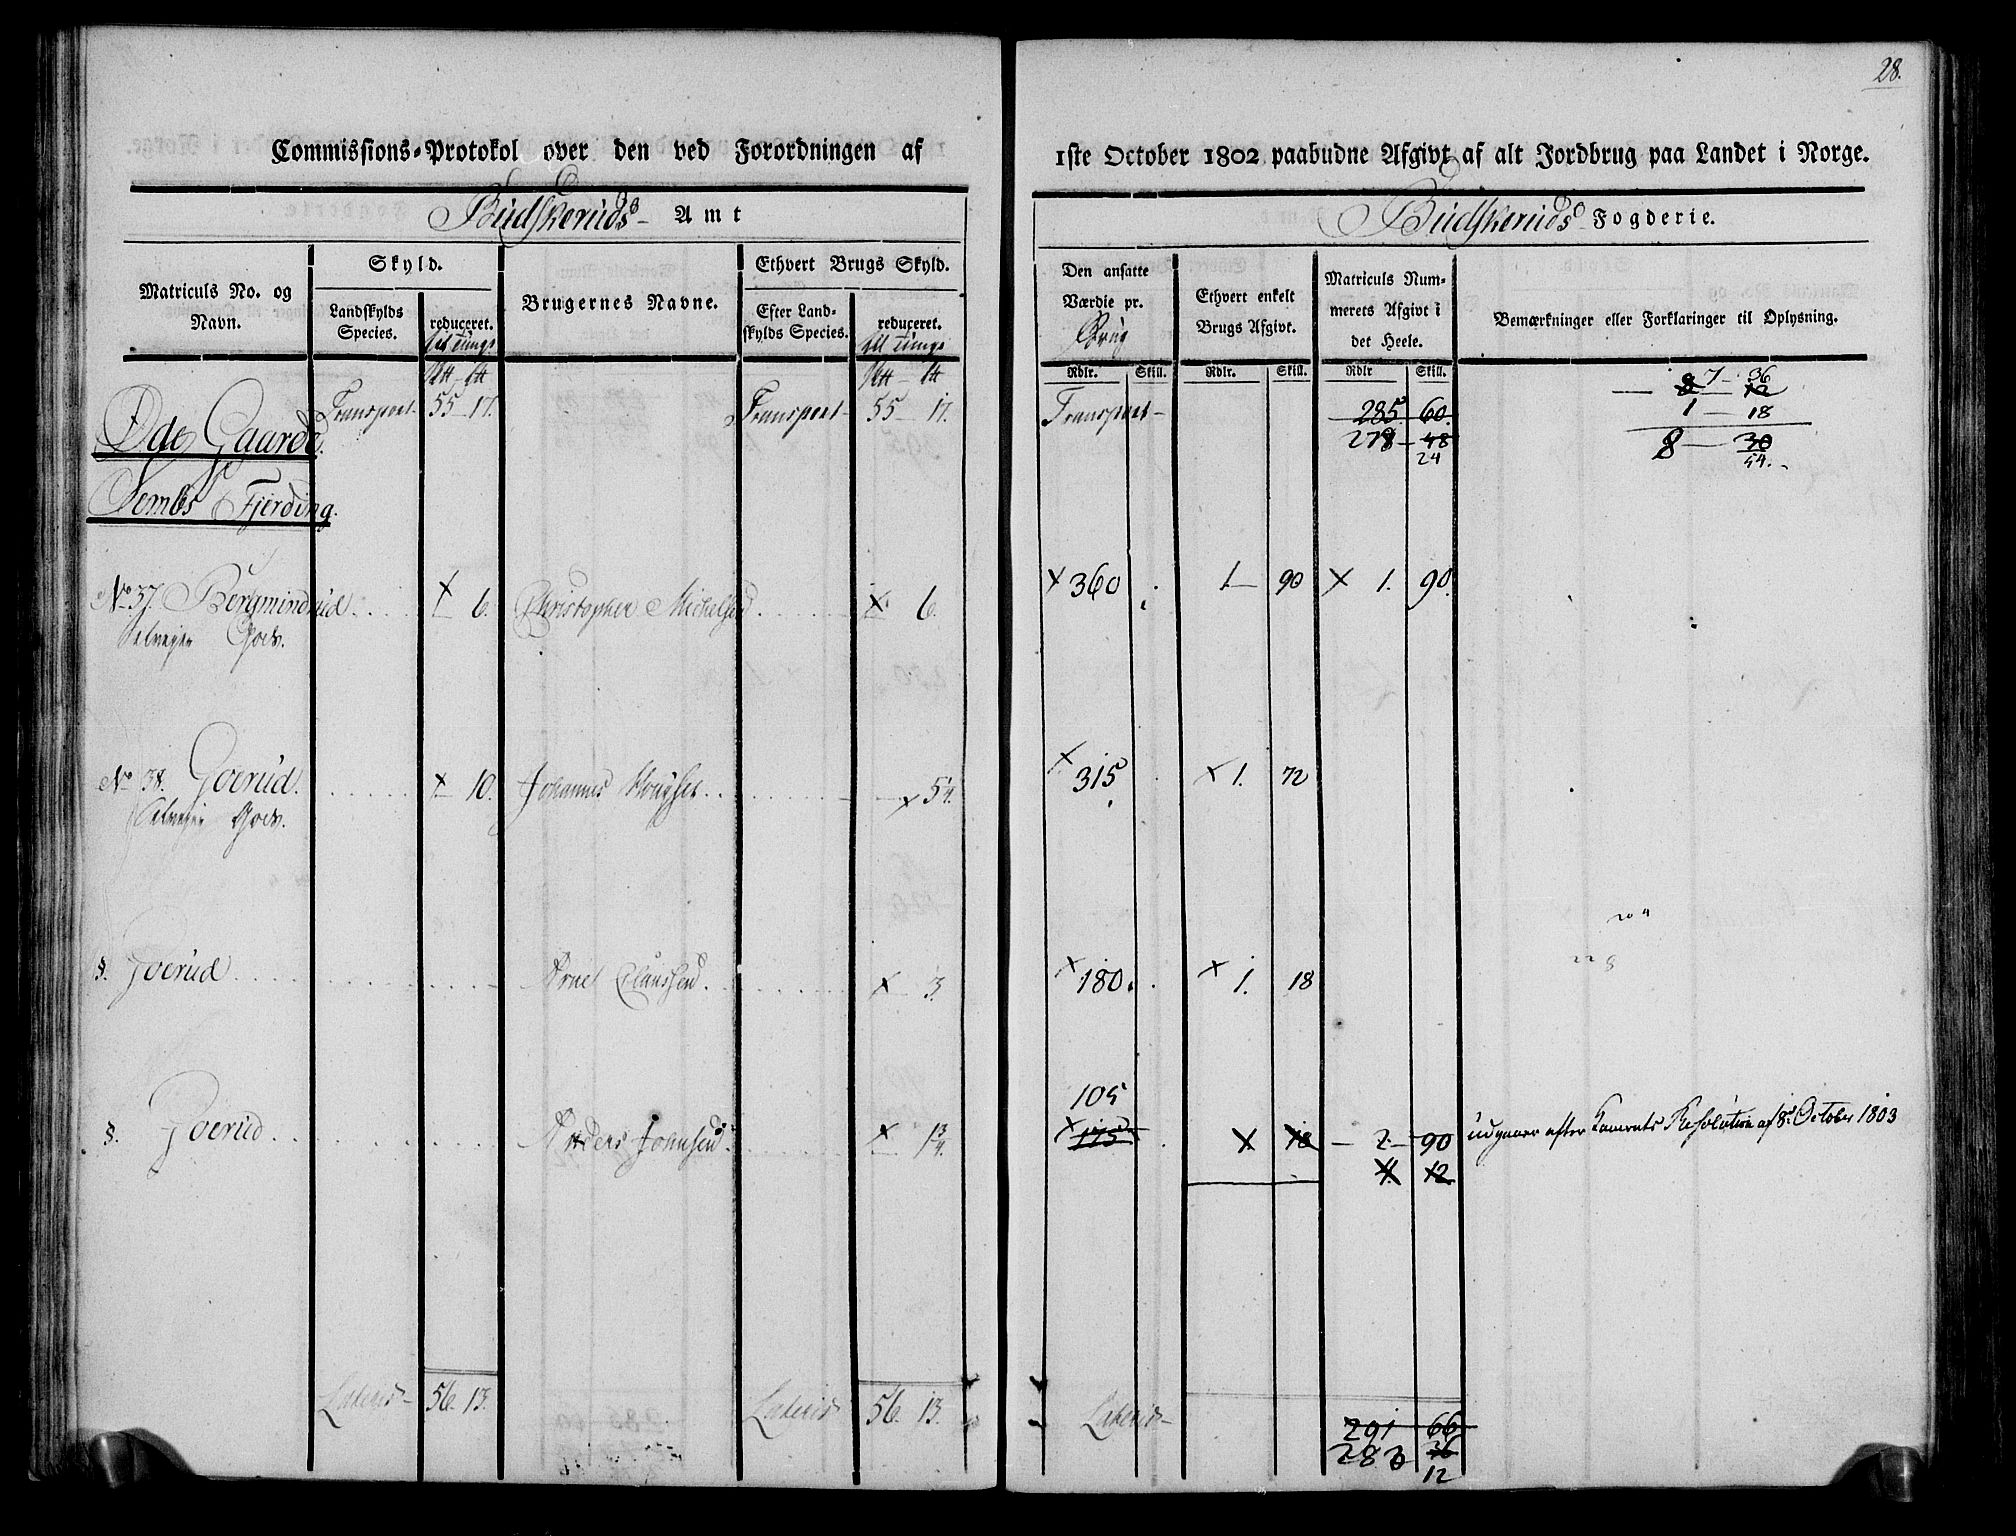 28.
Commissions-Protokol over den ved Forordningen af
1ste October 1802 paabudne Afgivt af alt Jordbrug paa Landet i Norge.
Budskeruds Amt
Budskeruds Fogderie.
Matriculs No. og Navn.
Skyld.
Landskylds Species.
reduceret. til Tunge
Brugernes Navne.
Ethvert Brugs Skyld.
Efter Landskylds Species.
reduceret. til Tunge
Den ansatte Værdie pr. Brug
Ethvert enkelt Brugs Afgivt.
Matriculs Nummerets Afgivt i det Heele.
Bemærkninger eller Forklaringer til Oplysning.
Rdlr. Skill. Rdlr. Skill. Rdlr Skill.
Transport 55 17. Transport 55 17. Transport 285 60.
278 48
24
8 7 36 12
1 18
8 30
54.
Øde Gaarde.
Sembs Fjerding.
No 37. Bergmindrud 6. Christopher Michelsen 6. 360 1 90 1. 90.
Selveier Gods.
No 38. Goerud. 10. Johannes 5/4. 315 1. 72
Selveier Gods.
§. Goerud Arne Claussen. 3. 180. 1. 18
105
§. Goerud Anders Johnsen. 13/4. 175 1. 18 2 90 udgaaer efter Kamrets Resolution af 8de October 1803
4. 12.
Lateris 56. 13. Lateris 56. 13. Lateris 291 66
283 36
12